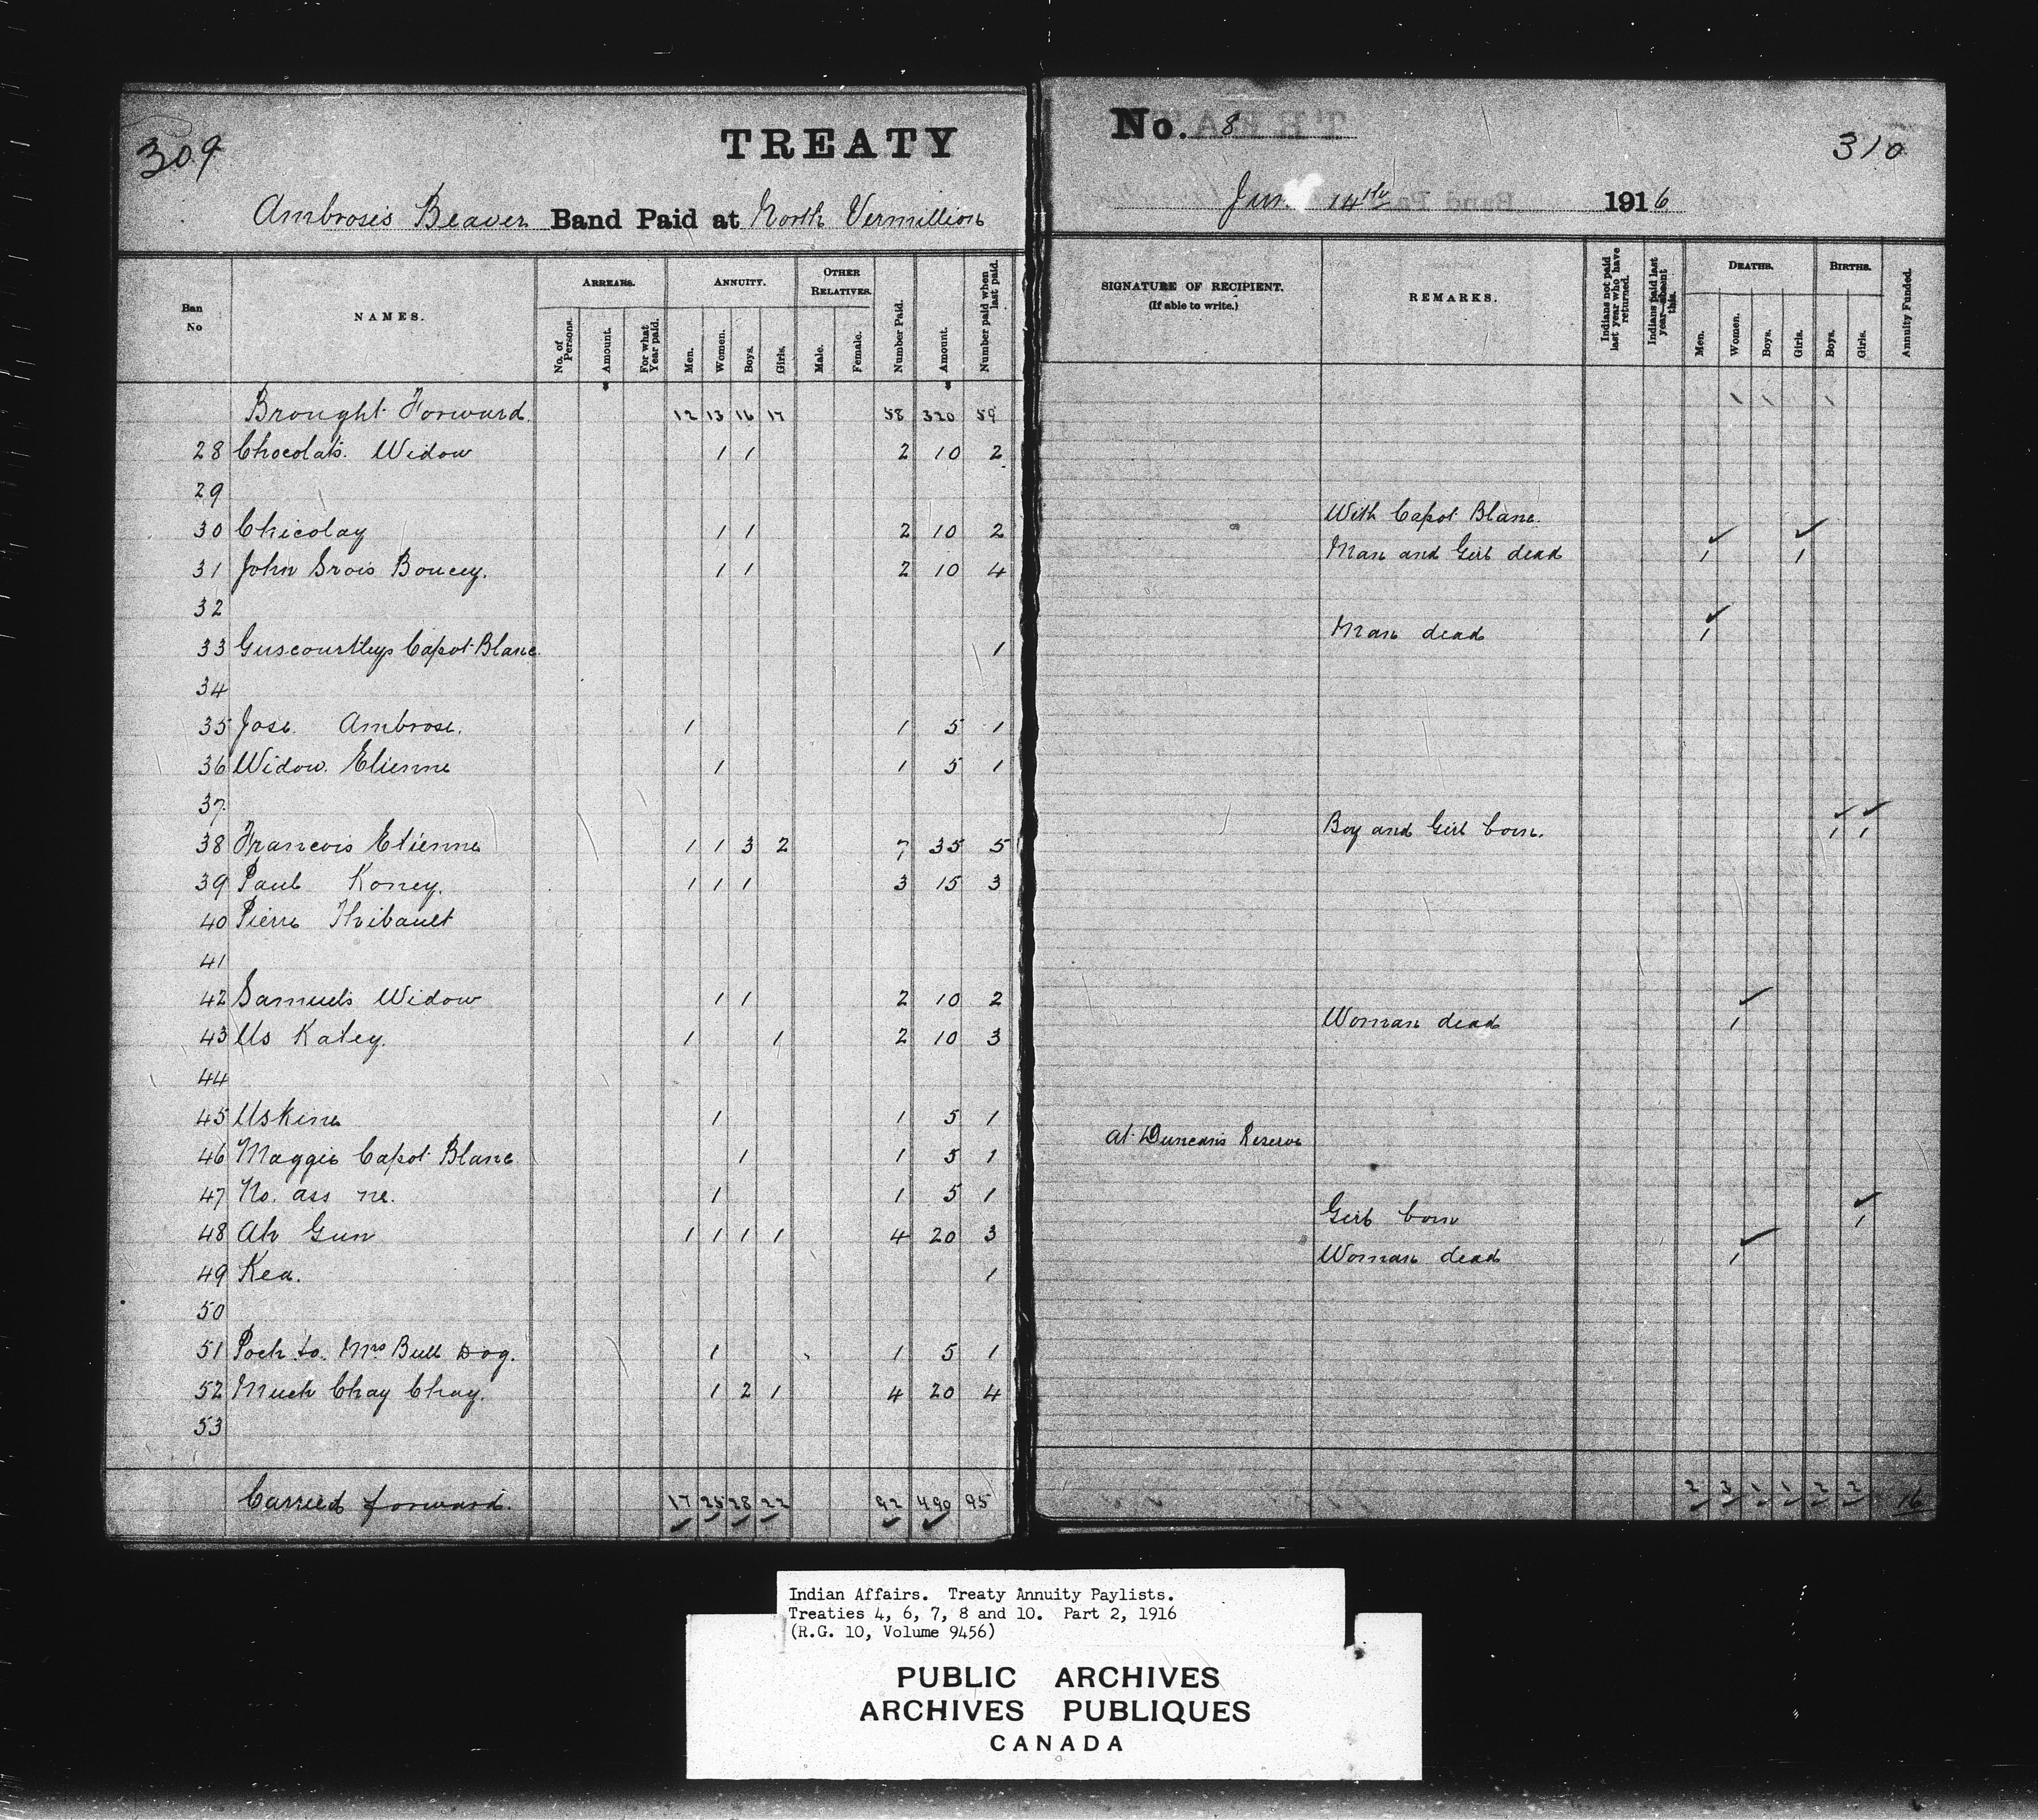 309
TREATY
Ambrose's Beaver Band Paid at North Vermillion
Ban No
NAMES.
ARREARS.
No. of Persons.
Amount.
For what Year paid.
ANNUITY.
Men.
Women.
Boys.
Girls.
OTHER RELATIVES.
Male.
Female.
Number Paid.
Amount.
Number paid when last paid.
Brought Forward. 12 13 16 17 58 320 59
28 Chocolat's Widow 1 1 2 10 2
29
30 Chicolay 1 1 2 10 2
31 John Srois Boucey. 1 1 2 10 4
32
33 Guscourtleys Capot Blanc 1
34
35 Jose Ambrose. 1 1 5 1
36 Widow Etienne 1 1 5 1
37
38 Francois Etienne 1 1 3 2 7 35 5
39 Paul Koney. 1 1 1 3 15 3
40 Pierre Thibault
41
42 Samuels Widow 1 1 2 10 2
43 Us Katey. 1 1 2 10 3
44
45 Uskine 1 1 5 1
46 Maggie Capot Blanc 1 1 5 1
47 No. ass ne. 1 1 5 1
48 Ah Gun 1 1 1 1 4 20 3
49 Kea. 1
50
51 Poch to. Mrs Bull Dog. 1 1 5 1
52 Much Chay Chay. 1 2 1 4 20 4
53
Carried forward. 17 25 28 22 92 490 95
No. 8
310
June 14th 1916
SIGNATURE OF RECIPIENT.
(If able to write.)
REMARKS.
Indians not paid last year who have returned.
Indians paid last year—absent this.
DEATHS.
Men.
Women.
Boys.
Girls.
BIRTHS.
Boys.
Girls.
Annuity Funded.
1 1 1
With Capot Blanc.
Man and Girl dead 1 1
Man dead 1
Boy and Girl born. 1 1
Woman dead 1
At Duncan's Reserve
Girl born 1
Woman dead 1
2 3 1 1 2 2 16
Indian Affairs. Treaty Annuity Paylists.
Treaties 4, 6, 7, 8 and 10. Part 2, 1916
(R.G. 10, Volume 9456)
PUBLIC ARCHIVES
ARCHIVES PUBLIQUES
CANADA